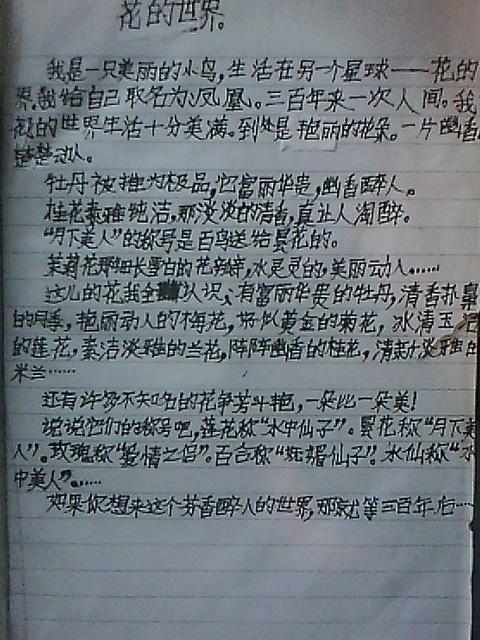 花的世界。
我是一只美丽的小鸟,生活在另一个星球——花的
界,我给自己取名为凤凰。三百年来一次人间。我
的世界生活十分美满。到处是艳丽的花朵。一片幽香
楚楚动人。
牡丹被推为极品,它富丽华贵,幽香醉人。
桂花素雅纯洁,那淡淡的清香,真让人淘醉。
“月下美人”的称号是百鸟送给昙花的。
茉莉花那细长雪白的花瓣,水灵灵的,美丽动人……
这儿的花我全认识,有富丽华贵的牡丹,清香扑鼻
的月季,艳丽动人的梅花,好似黄金的菊花,冰清玉洁
的莲花,素洁淡雅的兰花,阵阵幽香的桂花,清新淡雅的
米兰……
还有许多不知名的花争芳斗艳,一朵比一朵美!
说说它们的称号吧,莲花称“水中仙子”。昙花称“月下美
人”。玫瑰称“爱情之侣”。百合称“婚仙子”。水仙称“水
中美人”……
如果你想来这个芬香醉人的世界,那就等三百年后…